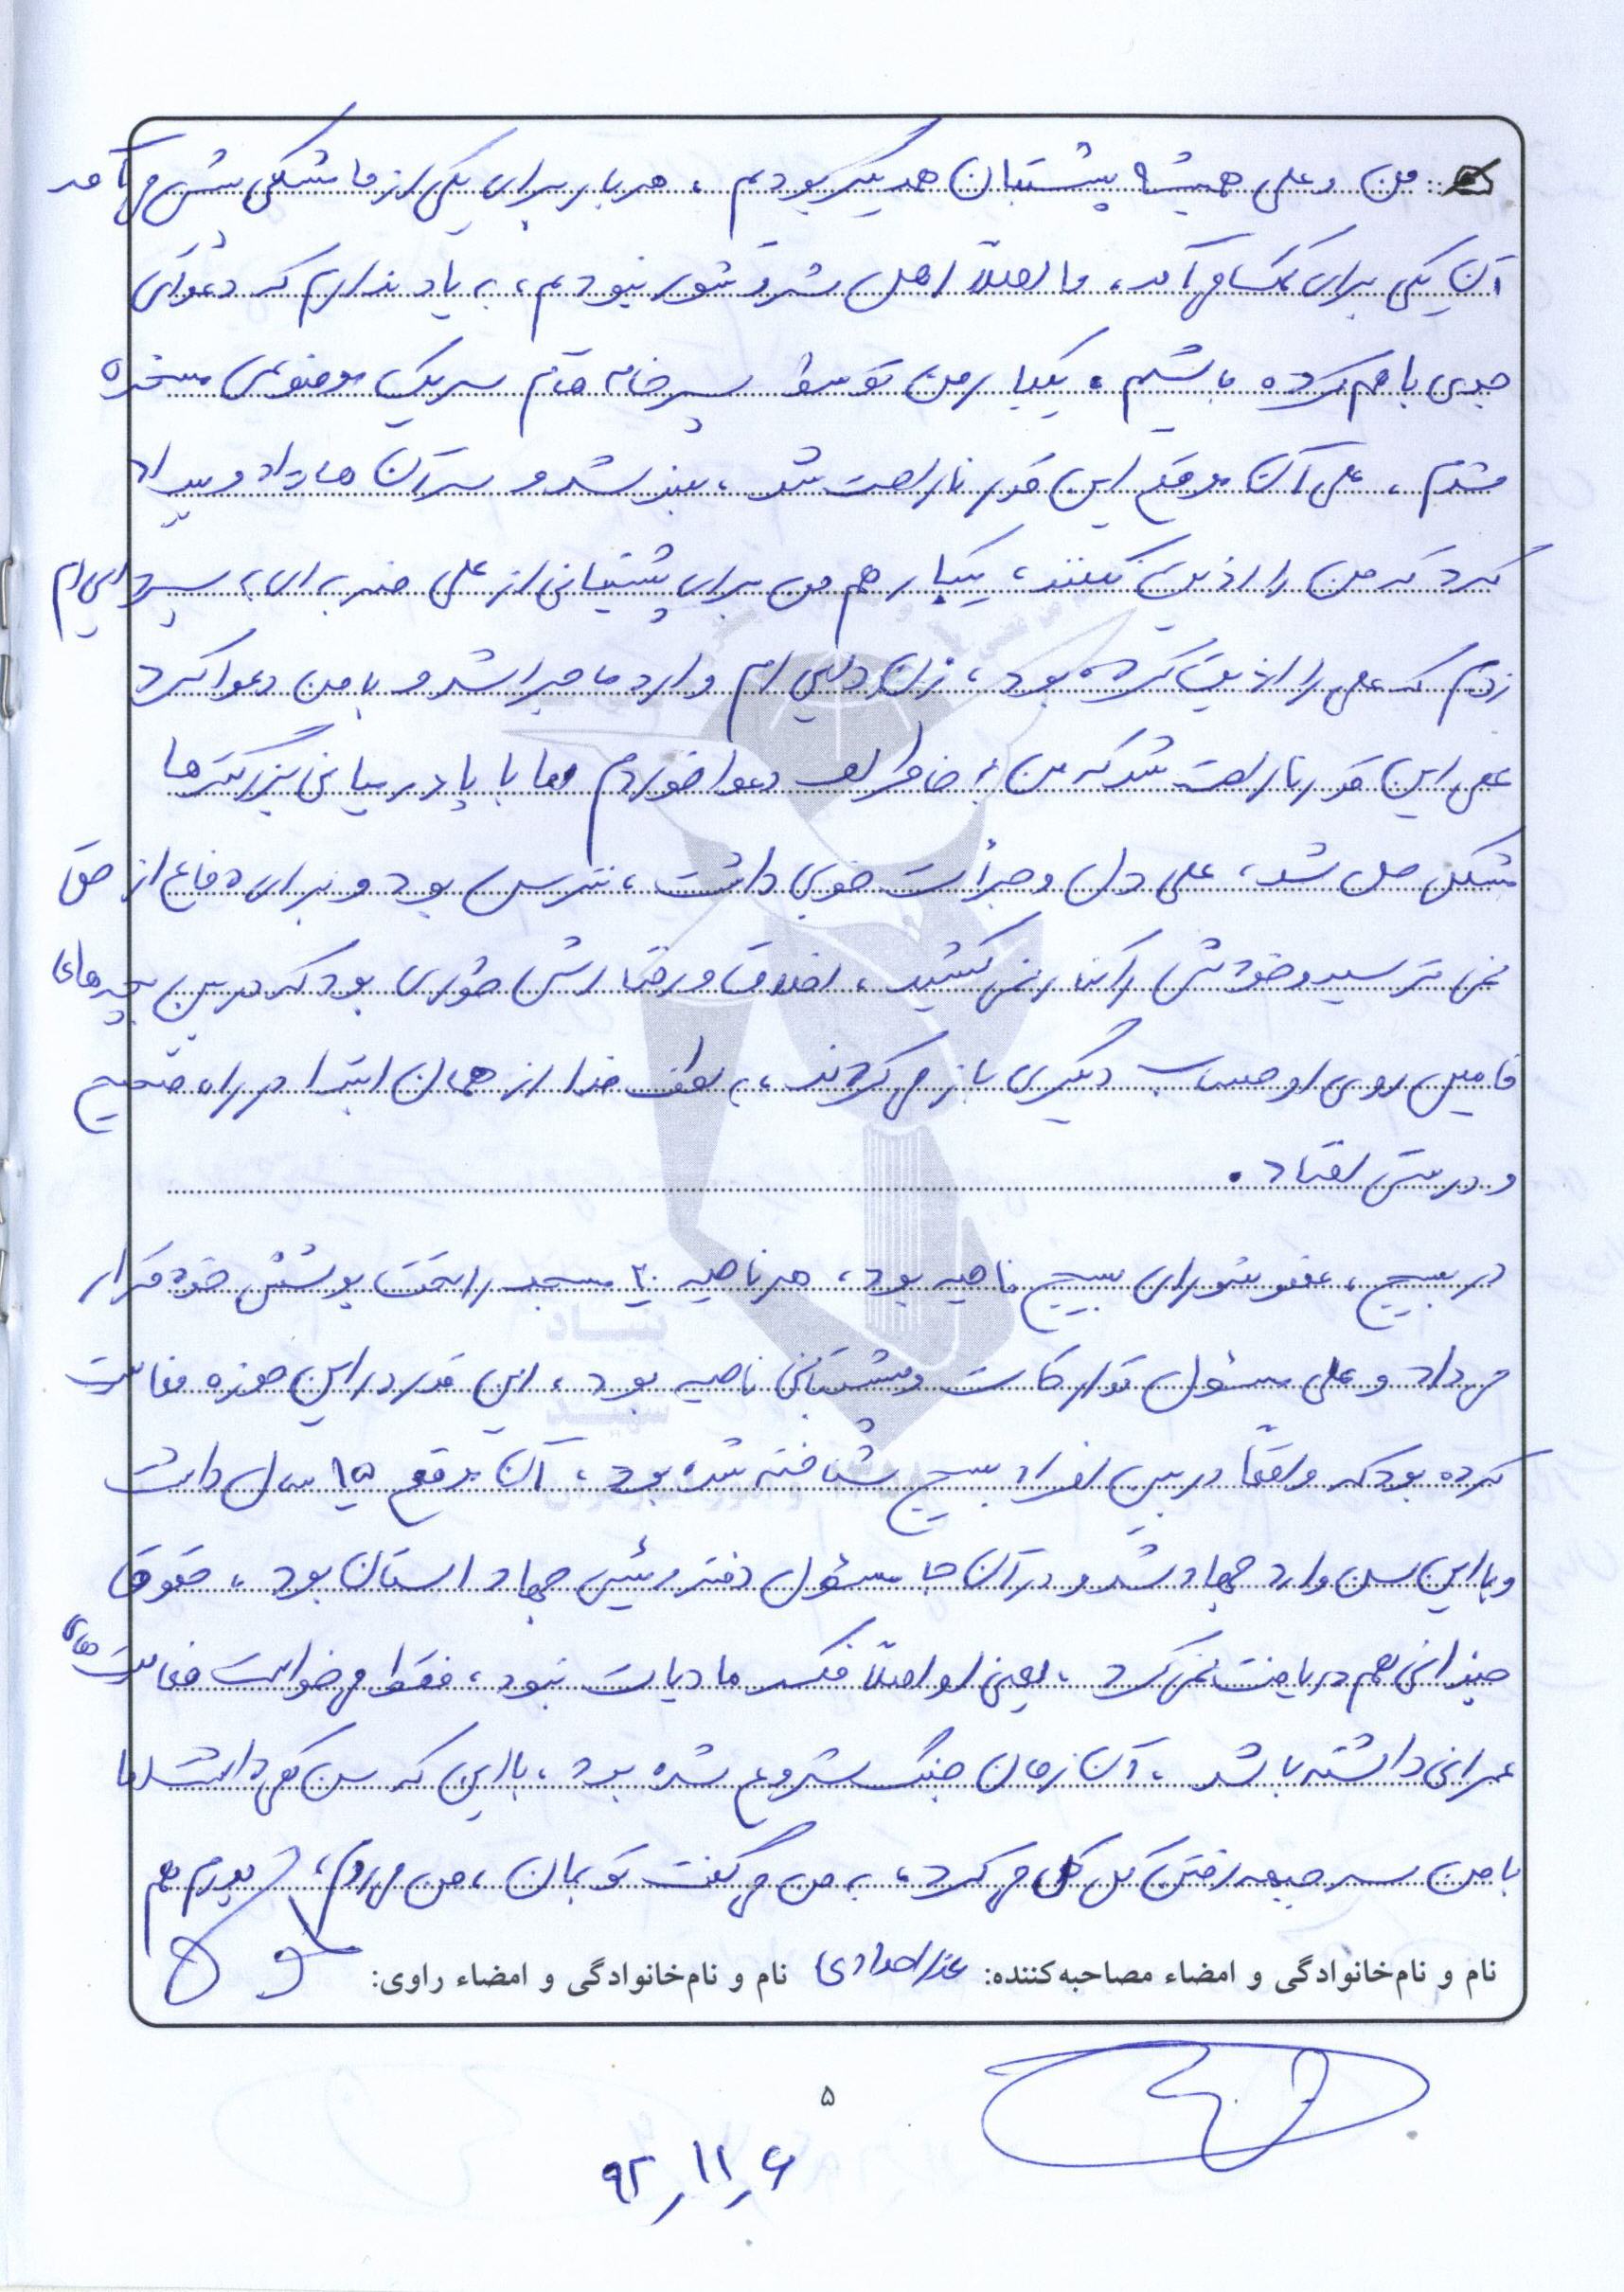 من و علی همیشه پشتیبان همدیگر بودیم، هر بار برای یکی از ما مشکلی پیش می آمد
آن یکی برای کمک می آمد، ما اصلاً اهل شر و شور نبودیم، به یاد ندارم که دعوای
جدی با هم کرده باشیم. یکبار من توسط پسرخاله هام سر یک موضوعی مسخره
شدم، علی آن موقع این قدر ناراحت شد، بلند شد و سر آن ها داد و بیداد
کرد که من را اذیت نکنند، یکبار هم من برای پشتیبانی از علی ضربه ای به پسر دایی ام
زدم که علی را اذیت کرده بود، زن دایی ام وارد ماجرا شد و با من دعوا کرد
علی این قدر ناراحت شد که من به خاطر او دعوا خوردم اما با پا در میانی بزرگترها
مشکل حل شد، علی دل و جرأت خوبی داشت، نترس بود و برای دفاع از حق
نمی ترسید و خودش را کنار نمی کشید، اخلاق و رفتارش طوری بود که در بین بچه های
فامیل روی او حساب دیگری باز می کردند، به لطف خدا از همان ابتدا در راه صحیح
و درستی افتاد.
در بسیج، عضو شورای بسیج ناحیه بود، هر ناحیه ۲۰ مسجد را تحت پوشش خود قرار
می داد و علی مسئول تدارکات و پشتیبانی ناحیه بود، این قدر در این حوزه فعالیت
کرده بود که واقعاً در بین افراد بسیج شناخته شده بود، آن موقع ۱۵ سال داشت
و با این سن وارد جهاد شد و در آن جا مسئول دفتر رئیس جهاد استان بود، حقوق
چندانی هم دریافت نمی کرد، یعنی او اصلاً فکر مادیات نبود، فقط می خواست فعالیت های
عمرانی داشته باشد، آن زمان جنگ شروع شده بود، با این که سن کمی داشت اما
با من سر جبهه رفتن کل کل می کرد، به من می گفت تو بمان، من می روم، پدرم هم
نام و نام‌خانوادگی و امضاء مصاحبه‌کننده: عذرا امدادی نام و نام‌خانوادگی و امضاء راوی:
۵
۹۲/۱۱/۶